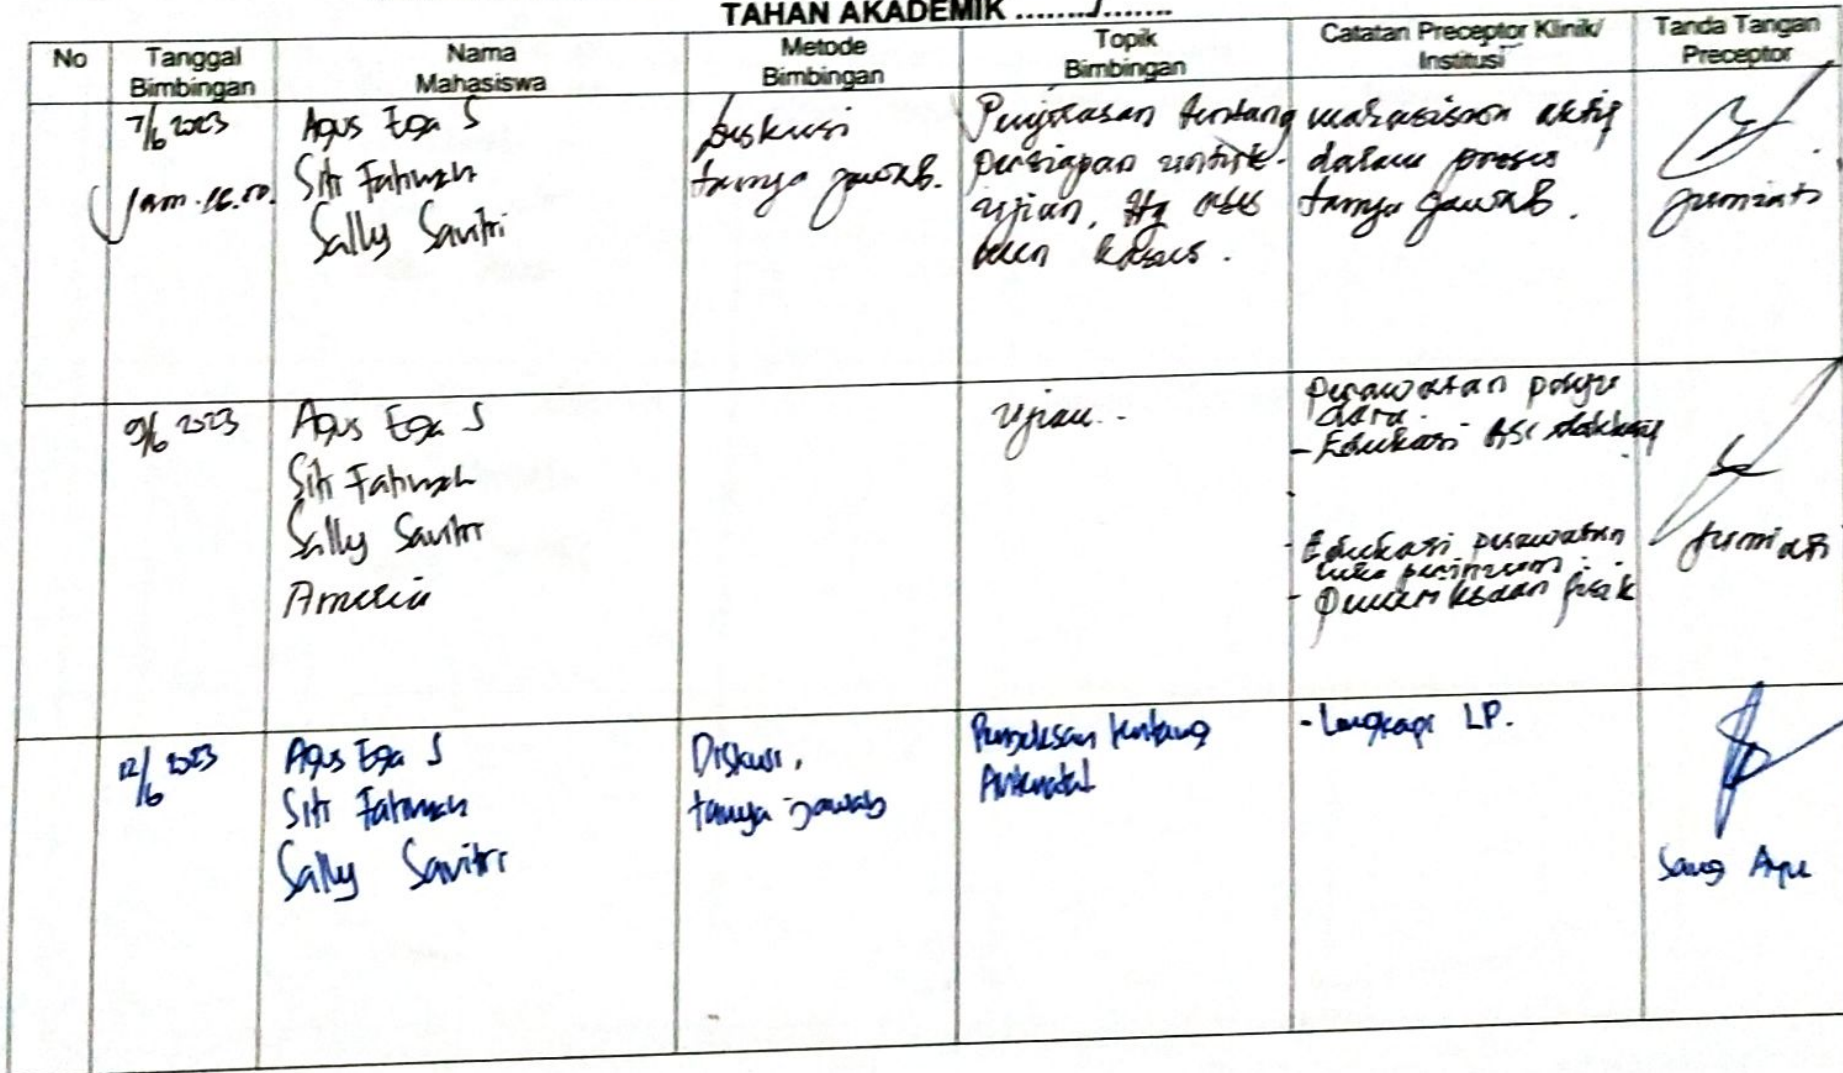 TAHAN AKADEMIK ......../.......
No
Tanggal
Bimbingan
Nama
Mahasiswa
Metode
Bimbingan
Topik
Bimbingan
Catatan Preceptor Klinik/
Institusi
Tanda Tangan
Preceptor
7/6 2023
Jam. 16.00.
Agus Ega S
Siti Fatimah
Sally Savitri
Diskusi
tanya jawab.
Penjelasan tentang
persiapan untuk
ujian, ttg
kasus.
mahasiswa aktif
dalam proses
tanya jawab.
Jumiati
9/6 2023
Agus Ega S
Siti Fatimah
Sally Savitri
Amelia
ujian..
perawatan payu
dara.
- Edukasi ASI
- Edukasi perawatan
luka perineum
- Pemeriksaan fisik
Jumiati
12/6 2023
Agus Ega S
Siti Fatimah
Sally Savitri
Diskusi,
tanya jawab
Penjelasan tentang
Antenatal
- Lengkapi LP.
Sang Ayu